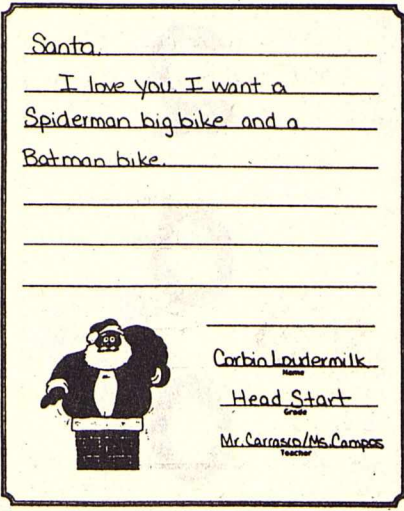 Santa,
I love you. I want a
Spiderman big bike and a
Batman bike.
Corbin Loudermilk
Name
Head Start
Grade
Mr. Carrasco/Ms. Campos
Teacher